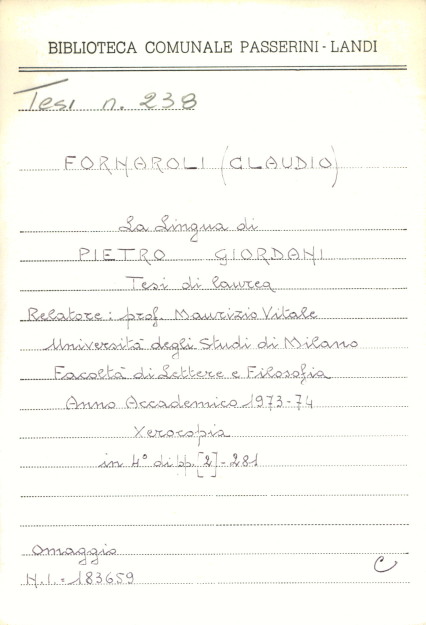 BIBLIOTECA COMUNALE PASSERINI - LANDI
Tesi n. 238
FORNAROLI (CLAUDIO)
La Lingua di
PIETRO GIORDANI
Tesi di laurea
Relatore: prof. Maurizio Vitale
Università degli Studi di Milano
Facoltà di Lettere e Filosofia
Anno Accademico 1973-74
Xerocopia
in 4° di pp. [2]-281
Omaggio
N.I.=183659
C